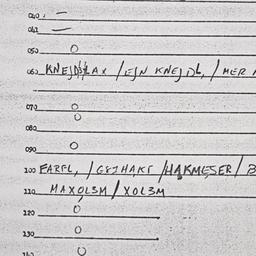 040. —
041 —
050 O
060 KNEJDSLAX / EJN KNEJDL, / MER
070 O
O
080
090 O
100 FARFL, / GEJHAKT / HAKMESER / B
110 MAXOL3M / XOL3M
120 O
130 O
140 O